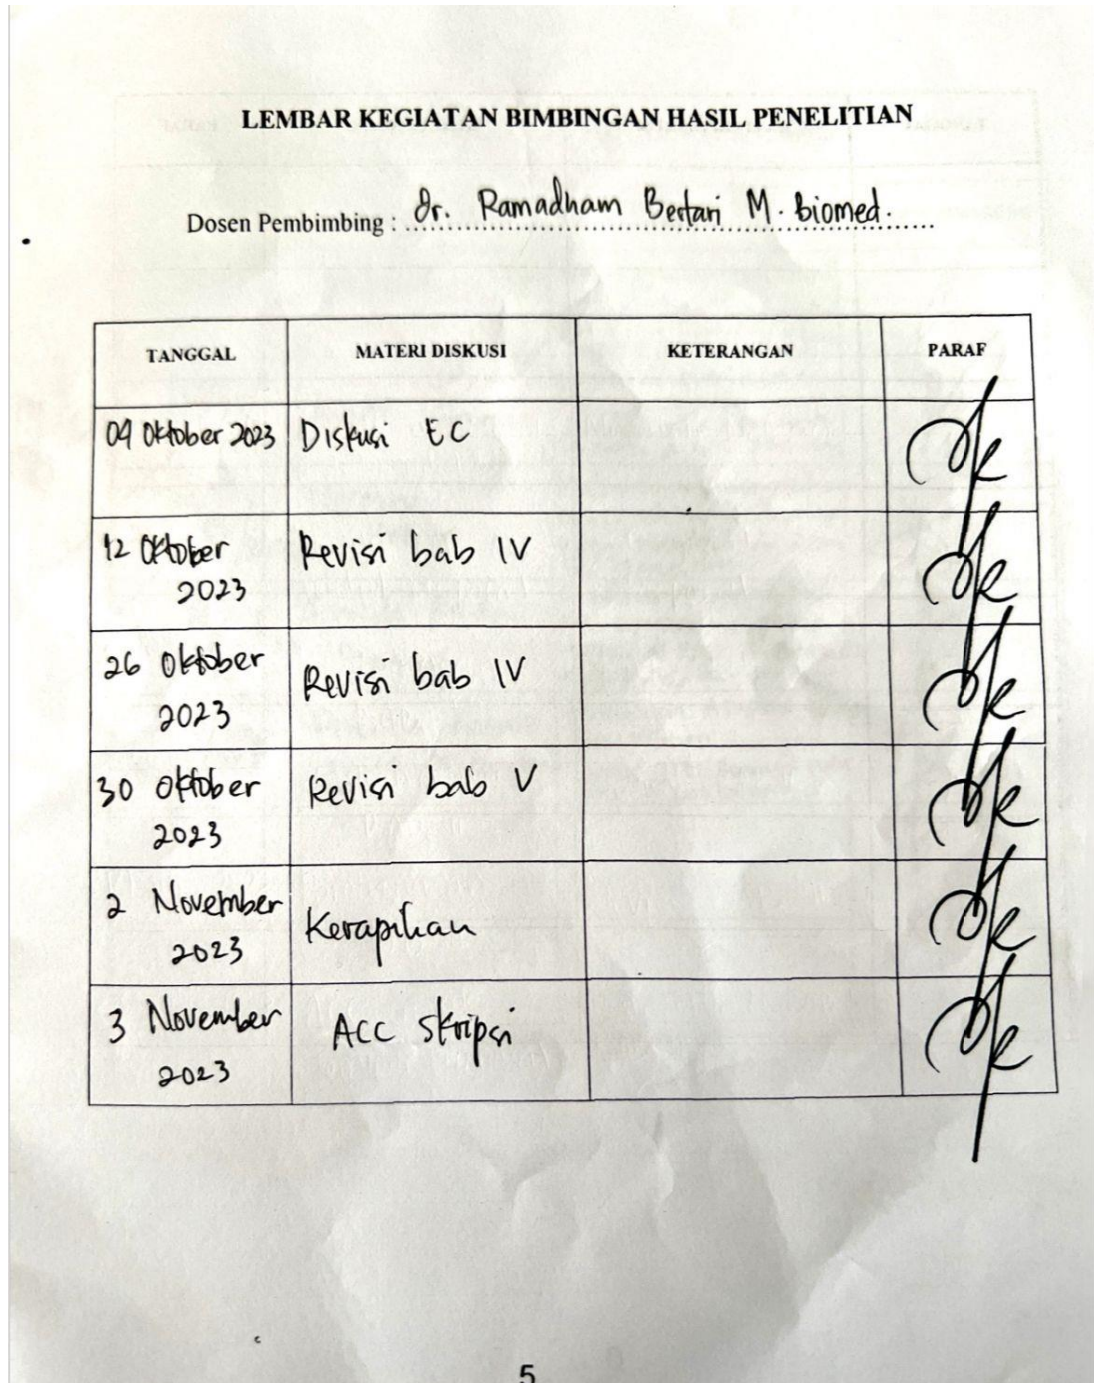 LEMBAR KEGIATAN BIMBINGAN HASIL PENELITIAN
Dosen Pembimbing : dr. Ramadham Bertari M. Biomed.
TANGGAL MATERI DISKUSI KETERANGAN PARAF
09 Oktober 2023 Diskusi EC
12 Oktober
2023
Revisi bab IV
26 Oktober
2023
Revisi bab IV
30 Oktober
2023
Revisi bab V
2 November
2023
Kerapihan
3 November
2023
ACC skripsi
5